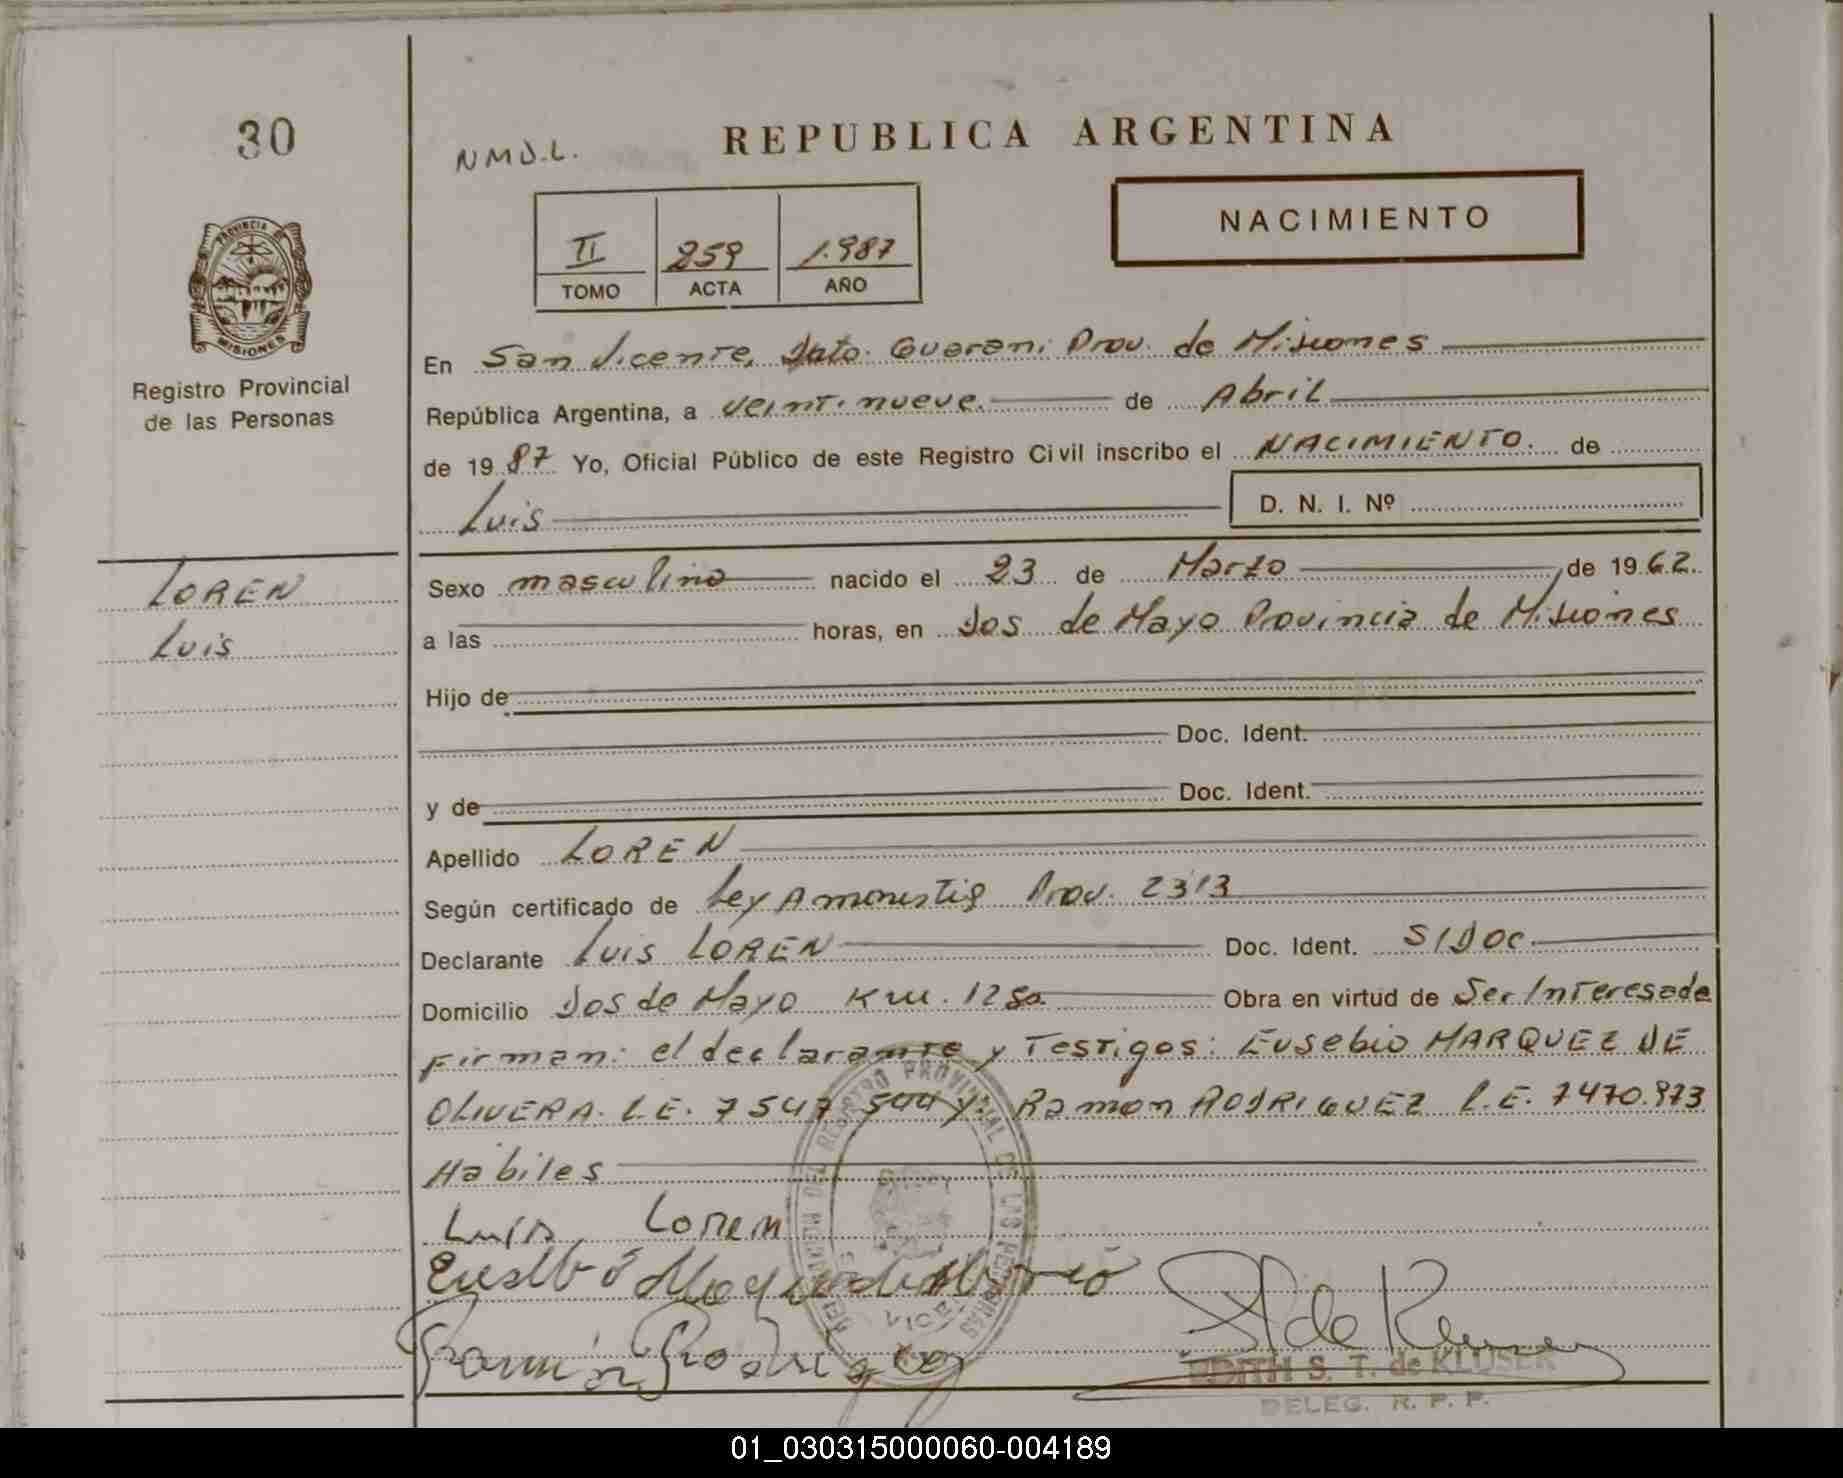 30
N M J. L.
REPUBLICA ARGENTINA
NACIMIENTO
II 259 1.987
TOMO ACTA AÑO
PROVINCIA DE
MISIONES
Registro Provincial
de las Personas
En San Vicente, Dpto. Guarani Prov. de Misiones
República Argentina, a veintinueve. de Abril
de 1987 Yo, Oficial Público de este Registro Civil inscribo el NACIMIENTO. de
Luis D. N. I. Nº
LOREN
Luis
Sexo masculino nacido el 23 de Marzo de 1962.
a las horas, en Dos de Mayo Provincia de Misiones
Hijo de
Doc. Ident.
y de Doc. Ident.
Apellido LOREN
Según certificado de Ley Amonistia Prov. 2313
Declarante Luis LOREN Doc. Ident. S/DOC
Domicilio Dos de Mayo Km. 1280. Obra en virtud de Ser Interesado
Firman: el declarante y Testigos: Eusebio MARQUEZ DE
OLIVERA. L.E. 7547 544 y: Ramon RODRIGUEZ L.E. 7470.973
Habiles
Luis Loren
Ramón Rodriguez
EDITH S. T. de KLUSER
DELEG. R. P. P.
01_030315000060-004189